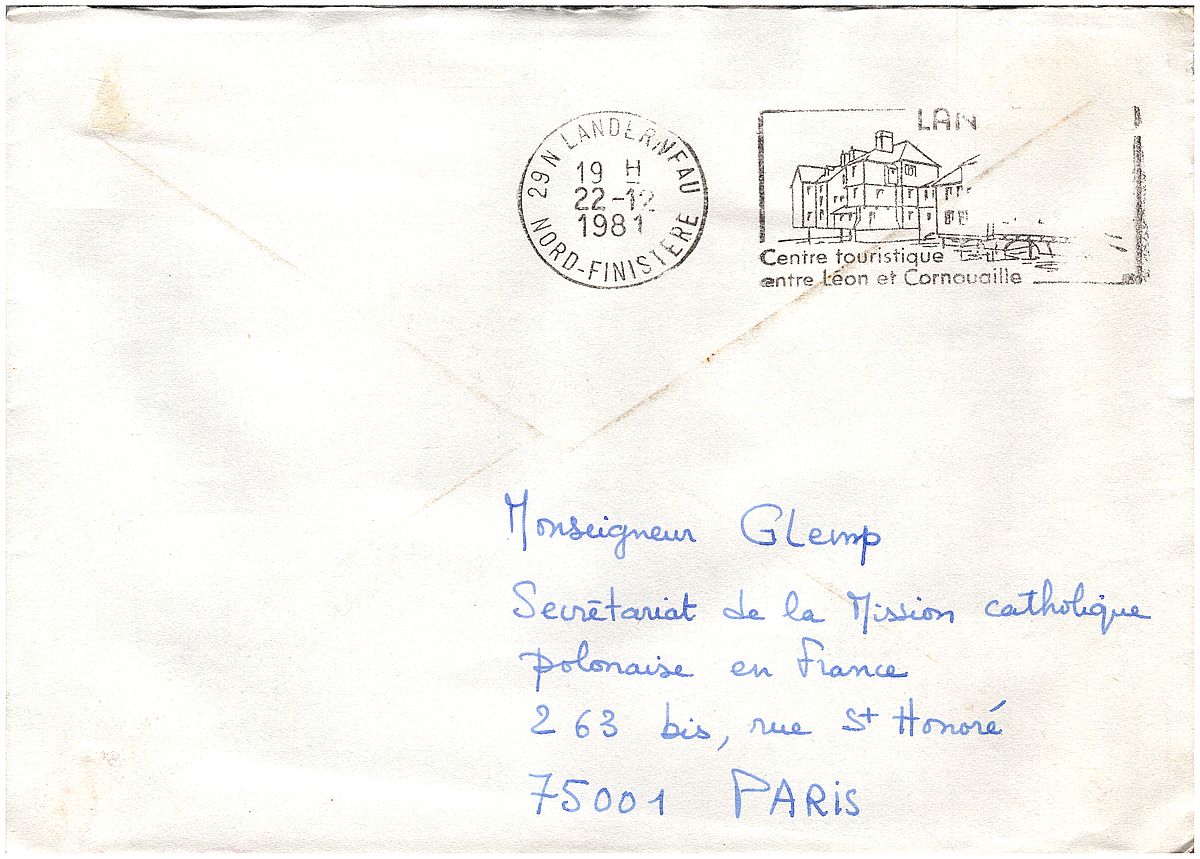 29N LANDERNEAU
19 H
22-12
1981
NORD-FINISTERE
LAN
Centre touristique
entre Léon et Cornouaille
Monseigneur GLemp
Secrétariat de la Mission catholique
polonaise en France
263 bis, rue St Honoré
75001 PARIS